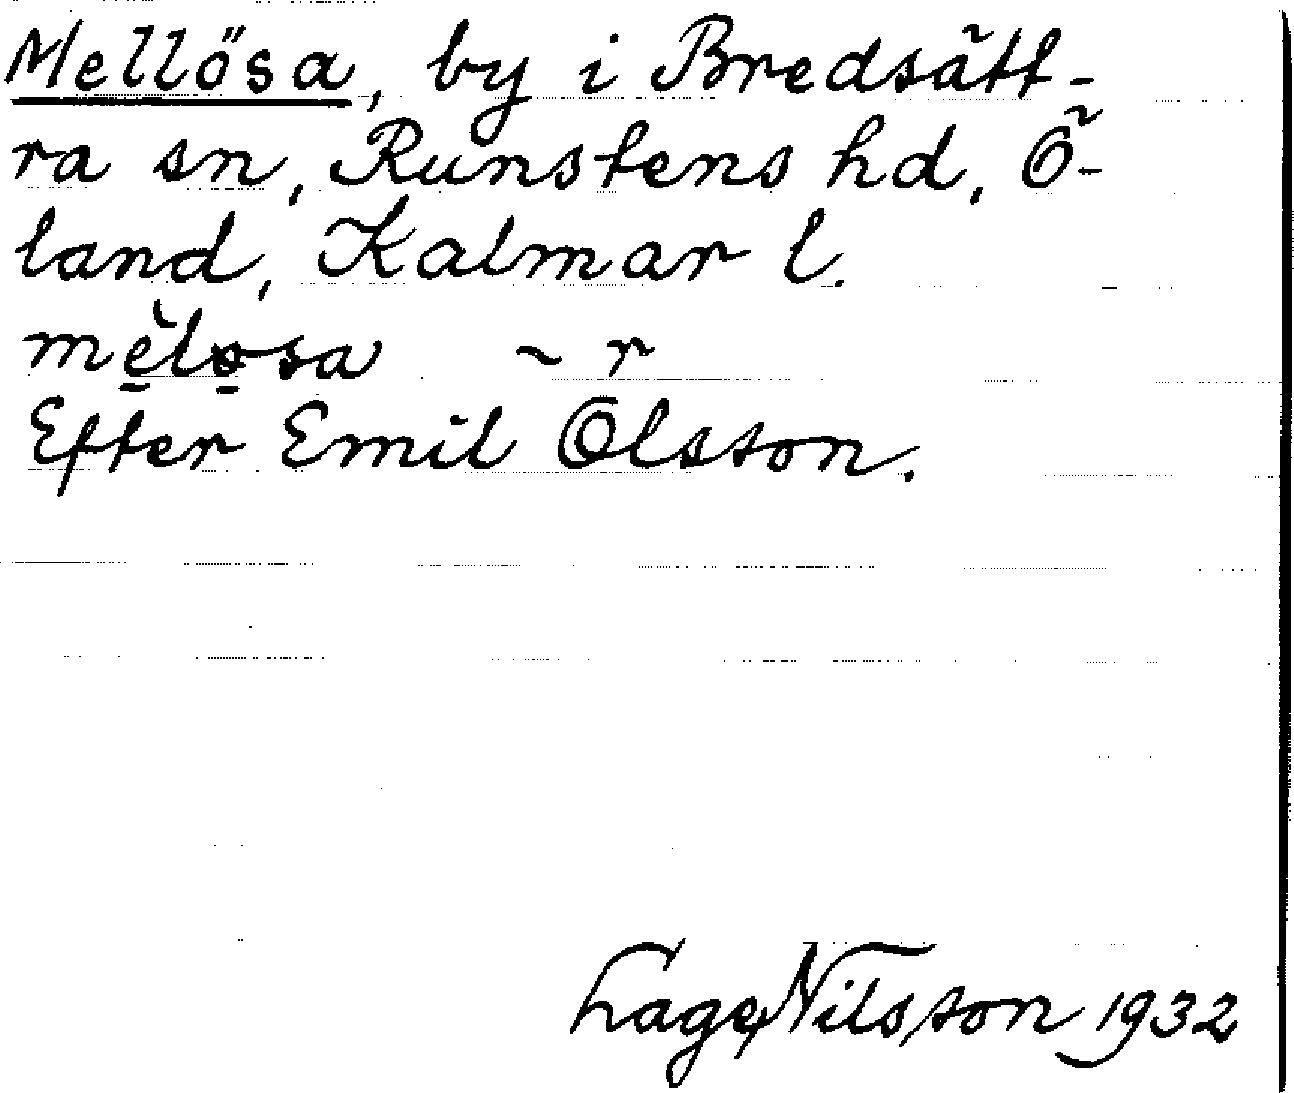 Mellösa, by i Bredsätt-
ra sn, Runstens hd, Ö-
land, Kalmar l.
~ r
Efter Emil Olsson.
Lage Nilsson 1932